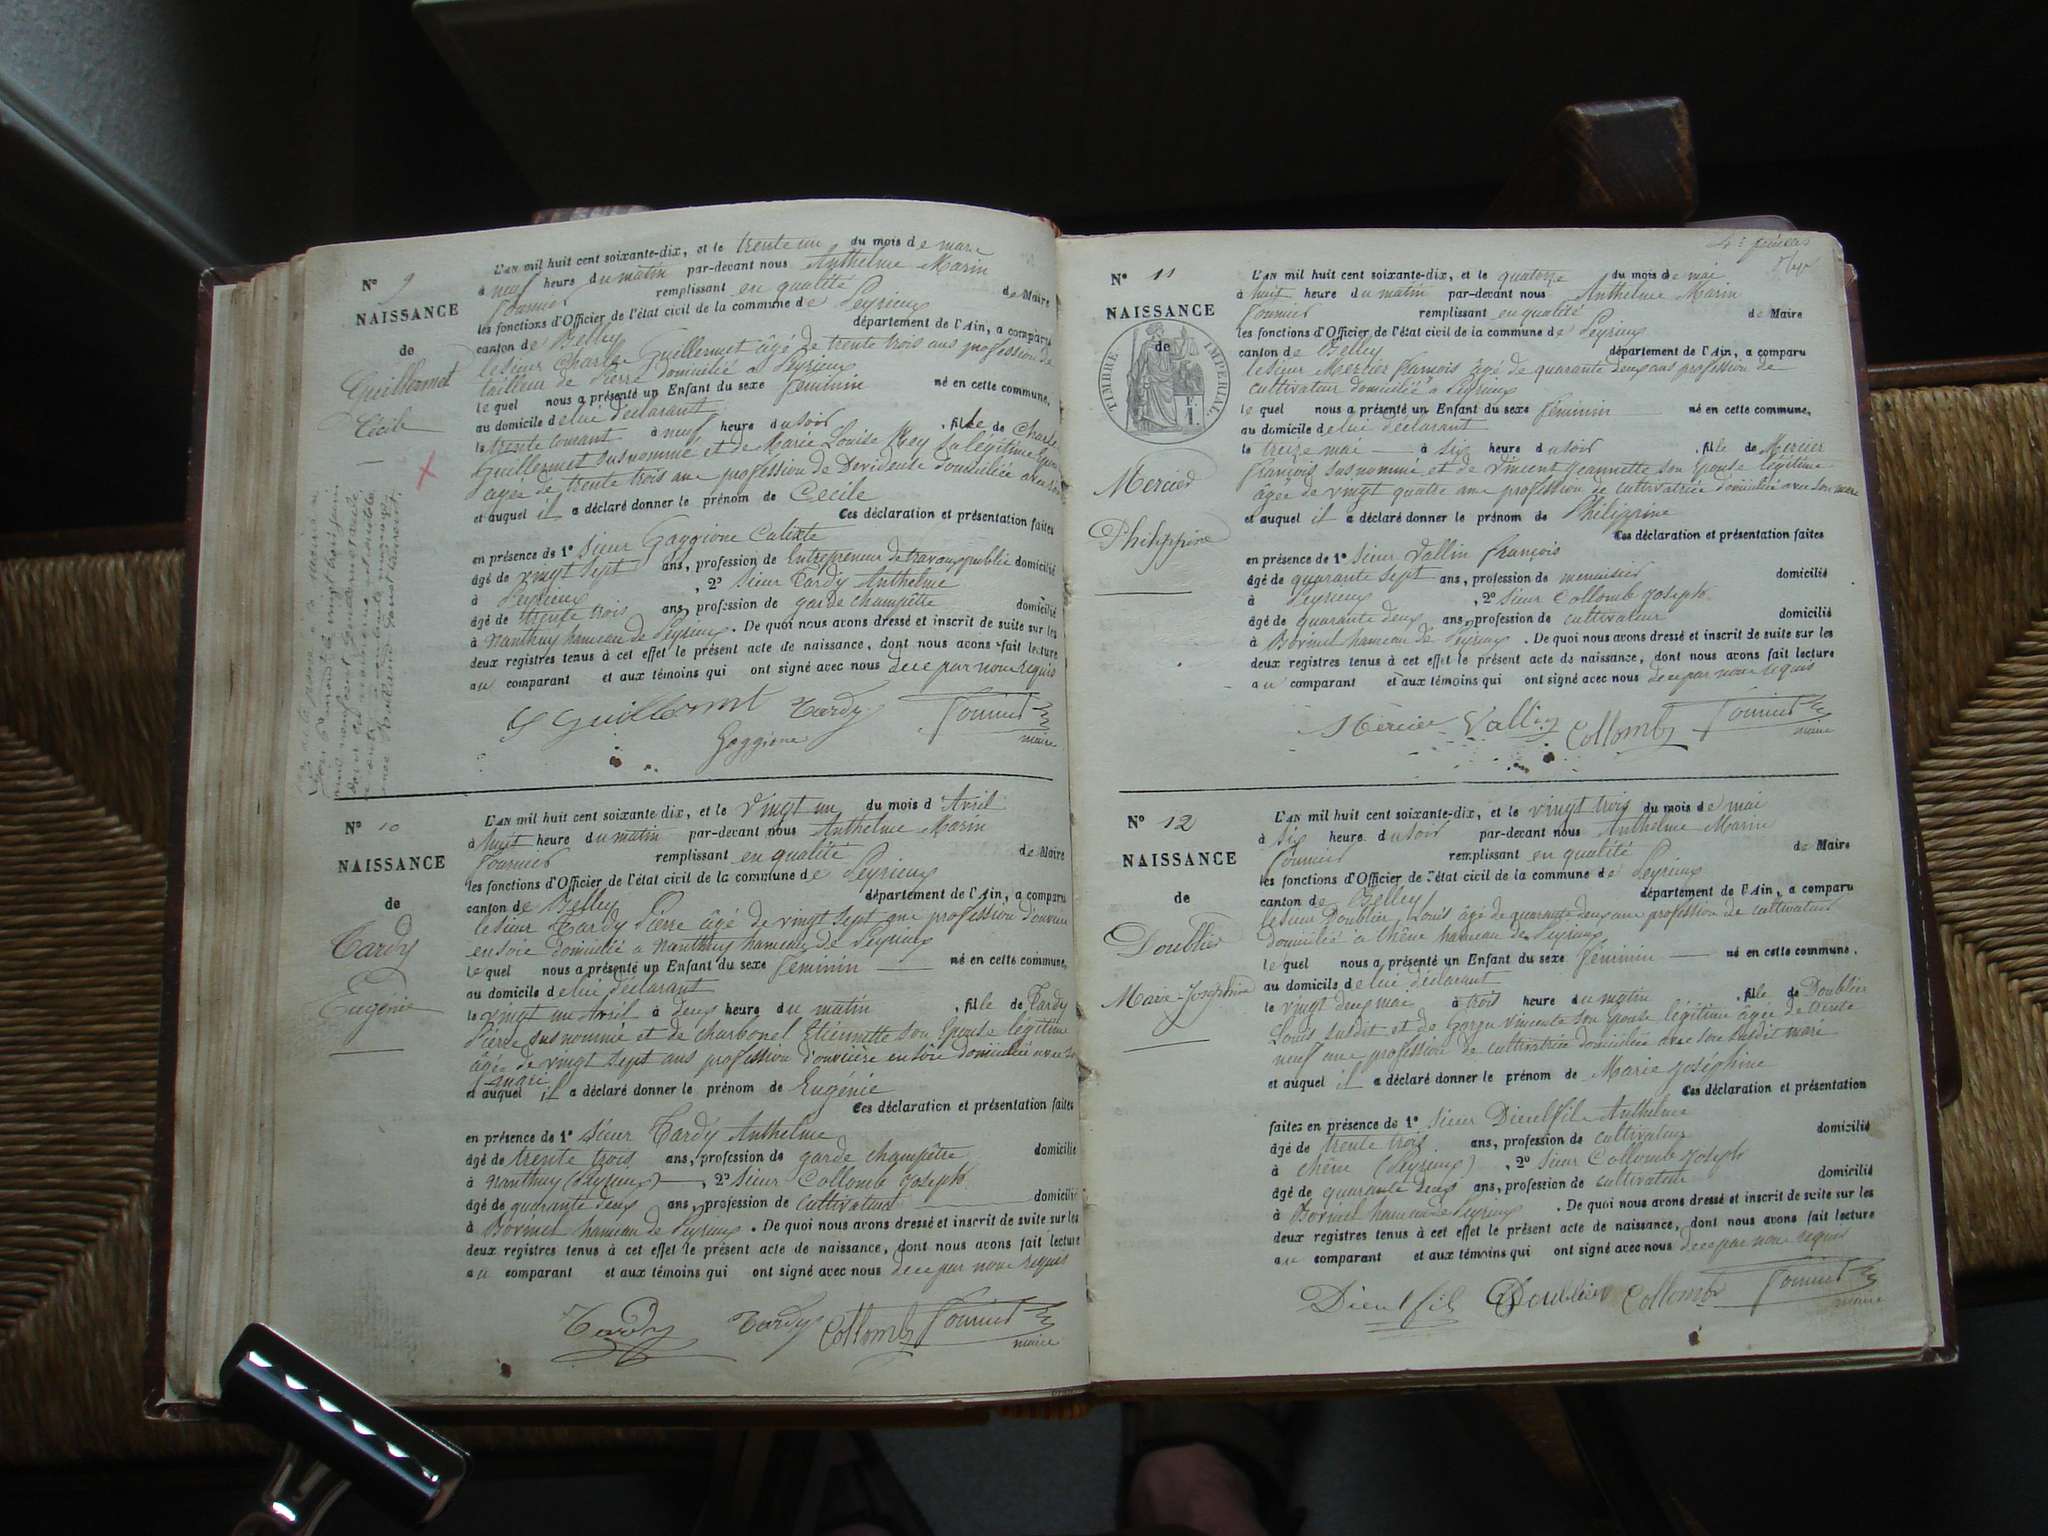 N° 9
NAISSANCE
de
Guillermet
Cécile
L'AN mil huit cent soixante-dix, et le trente un du mois de mars
à neuf heure du matin par-devant nous Anthelme Marin
Fournier remplissant en qualité de Maire
les fonctions d'Officier de l'état civil de la commune de Peyrieux
canton de Belley département de l'Ain, a comparu
le sieur Charles Guillermet âgé de trente trois ans profession de
tailleur de Pierre domicilié a Peyrieux
le quel nous a présenté un Enfant du sexe féminin né en cette commune,
au domicile de lui déclarant
le trente courant à neuf heure du soir, fille de Charle
Guillermet susnommé et de Marie Louise Rey sa légitime
agée de trente trois ans profession de Devideuse domiciliée avec
et auquel il a déclaré donner le prénom de Cécile
Ces déclaration et présentation faites
en présence de 1° Sieur Gaggione Calixte
âgé de vingt sept ans, profession de Entrepreneur de travaux publics domicilié
à Peyrieux, 2° Sieur Tardy Anthelme
âgé de trente trois ans, profession de garde champêtre domicilié
à Nanthuy hameau de Peyrieux. De quoi nous avons dressé et inscrit de suite sur les
deux registres tenus à cet effet le présent acte de naissance, dont nous avons fait lecture
au comparant et aux témoins qui ont signé avec nous de ce par nous requis
Guillermet Tardy Fournier
Gaggione maire
N° 10
NAISSANCE
de
Tardy
Eugénie
L'AN mil huit cent soixante-dix, et le vingt un du mois d'Avril
à huit heure du matin par-devant nous Anthelme Marin
Fournier remplissant en qualité de Maire
les fonctions d'Officier de l'état civil de la commune de Peyrieux
canton de Belley département de l'Ain, a comparu
le sieur Tardy Pierre âgé de vingt sept ans profession d'ouvrier
en soie domicilié a Nanthuy hameau de Peyrieux
le quel nous a présenté un Enfant du sexe féminin né en cette commune,
au domicile de lui déclarant
le vingt un Avril à deux heure du matin, fille de Tardy
Pierre susnommé et de Charbonel Etiennette son épouse légitime
âgée de vingt sept ans profession d'ouvrière en soie domiciliée avec
et auquel il a déclaré donner le prénom de Eugénie
Ces déclaration et présentation faites
en présence de 1° Sieur Tardy Anthelme
âgé de trente trois ans, profession de garde champêtre domicilié
à Nanthuy (Peyrieux), 2° Sieur Collomb Joseph
âgé de quarante deux ans, profession de cultivateur domicilié
à Bovinel hameau de Peyrieux. De quoi nous avons dressé et inscrit de suite sur les
deux registres tenus à cet effet le présent acte de naissance, dont nous avons fait lecture
au comparant et aux témoins qui ont signé avec nous de ce par nous requis
Tardy Tardy Collomb Fournier
maire
N° 11
NAISSANCE
de
TIMBRE IMPERIAL
Mercier
Philippine
L'AN mil huit cent soixante-dix, et le quatorze du mois de mai
à huit heure du matin par-devant nous Anthelme Marin
Fournier remplissant en qualité de Maire
les fonctions d'Officier de l'état civil de la commune de Peyrieux
canton de Belley département de l'Ain, a comparu
le sieur Mercier François âgé de quarante deux ans profession de
cultivateur domicilié a Peyrieux
le quel nous a présenté un Enfant du sexe féminin né en cette commune,
au domicile de lui déclarant
le treize mai à six heure du soir, fille de Mercier
François susnommé et de Vincent Jeannette son épouse légitime
âgée de vingt quatre ans profession de cultivatrice domiciliée avec son mari
et auquel il a déclaré donner le prénom de Philippine
Ces déclaration et présentation faites
en présence de 1° Sieur Vallin François
âgé de quarante sept ans, profession de menuisier domicilié
à Peyrieux, 2° Sieur Collomb Joseph
âgé de quarante deux ans, profession de cultivateur domicilié
à Bovinel hameau de Peyrieux. De quoi nous avons dressé et inscrit de suite sur les
deux registres tenus à cet effet le présent acte de naissance, dont nous avons fait lecture
au comparant et aux témoins qui ont signé avec nous de ce par nous requis
Mercier Vallin Collomb Fournier
maire
N° 12
NAISSANCE
de
Doublier
Marie-Joséphine
L'AN mil huit cent soixante-dix, et le vingt trois du mois de mai
à six heure du soir par-devant nous Anthelme Marin
Fournier remplissant en qualité de Maire
les fonctions d'Officier de l'état civil de la commune de Peyrieux
canton de Belley département de l'Ain, a comparu
le sieur Doublier Louis âgé de quarante deux ans profession de cultivateur
domicilié à Chêne hameau de Peyrieux
le quel nous a présenté un Enfant du sexe féminin né en cette commune,
au domicile de lui déclarant
le vingt deux mai à trois heure du matin, fille de Doublier
Louis susdit et de Vincente son épouse légitime âgée de trente
neuf ans profession de cultivatrice domiciliée avec son susdit mari
et auquel il a déclaré donner le prénom de Marie Joséphine
Ces déclaration et présentation
faites en présence de 1° Sieur Dieulefils Anthelme
âgé de trente trois ans, profession de cultivateur domicilié
à Chêne (Peyrieux), 2° Sieur Collomb Joseph
âgé de quarante deux ans, profession de cultivateur domicilié
à Bovinel hameau de Peyrieux. De quoi nous avons dressé et inscrit de suite sur les
deux registres tenus à cet effet le présent acte de naissance, dont nous avons fait lecture
au comparant et aux témoins qui ont signé avec nous de ce par nous requis
Doublier Collomb Fournier
maire